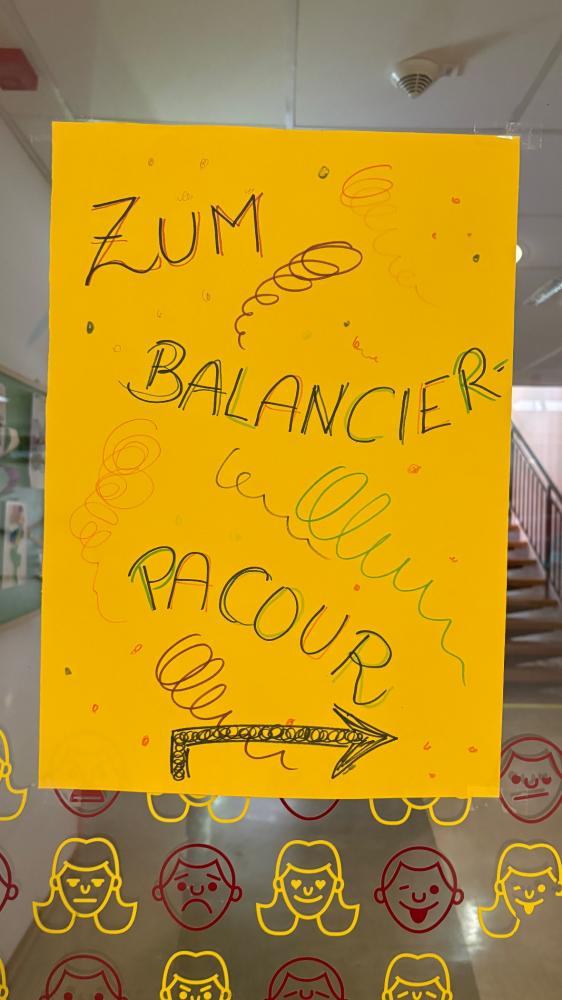 ZUM
BALANCIER-
PACOUR